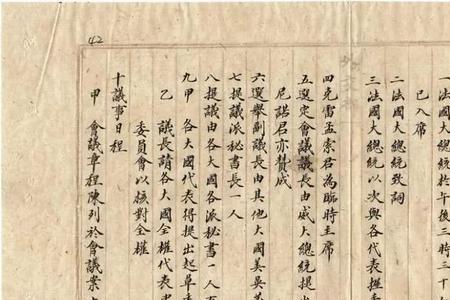 一法國大總統於午後三時三十
已入席
二法國大總統致詞
三法國大總統以次與各代表握
四克雷孟索君為臨時主席
五選定會議議長由威大總統提出
尼諾君亦贊成
六選舉副議長由其他大國美吳英
七提議派秘書長一人
八提議由各大國各派秘書一人
九甲 各大國代表得提出起草委
乙 議長請各大國全權代表
委員會以核對全權
十議事日程
甲 會議章程陳列於會議案
42